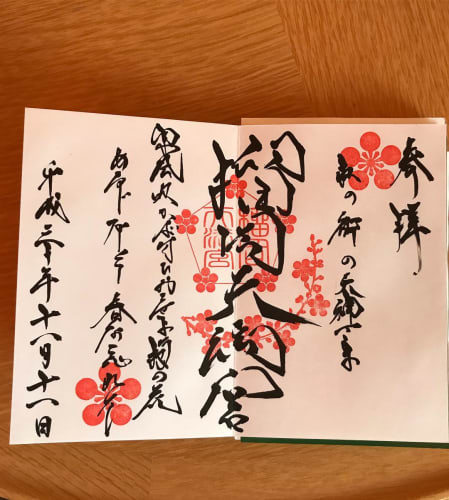 参拝
の天神さま
天満宮
東風吹かば匂ひおこせよ梅の花
あるじなしとて
春な忘れそ
平成三十年十一月十一日